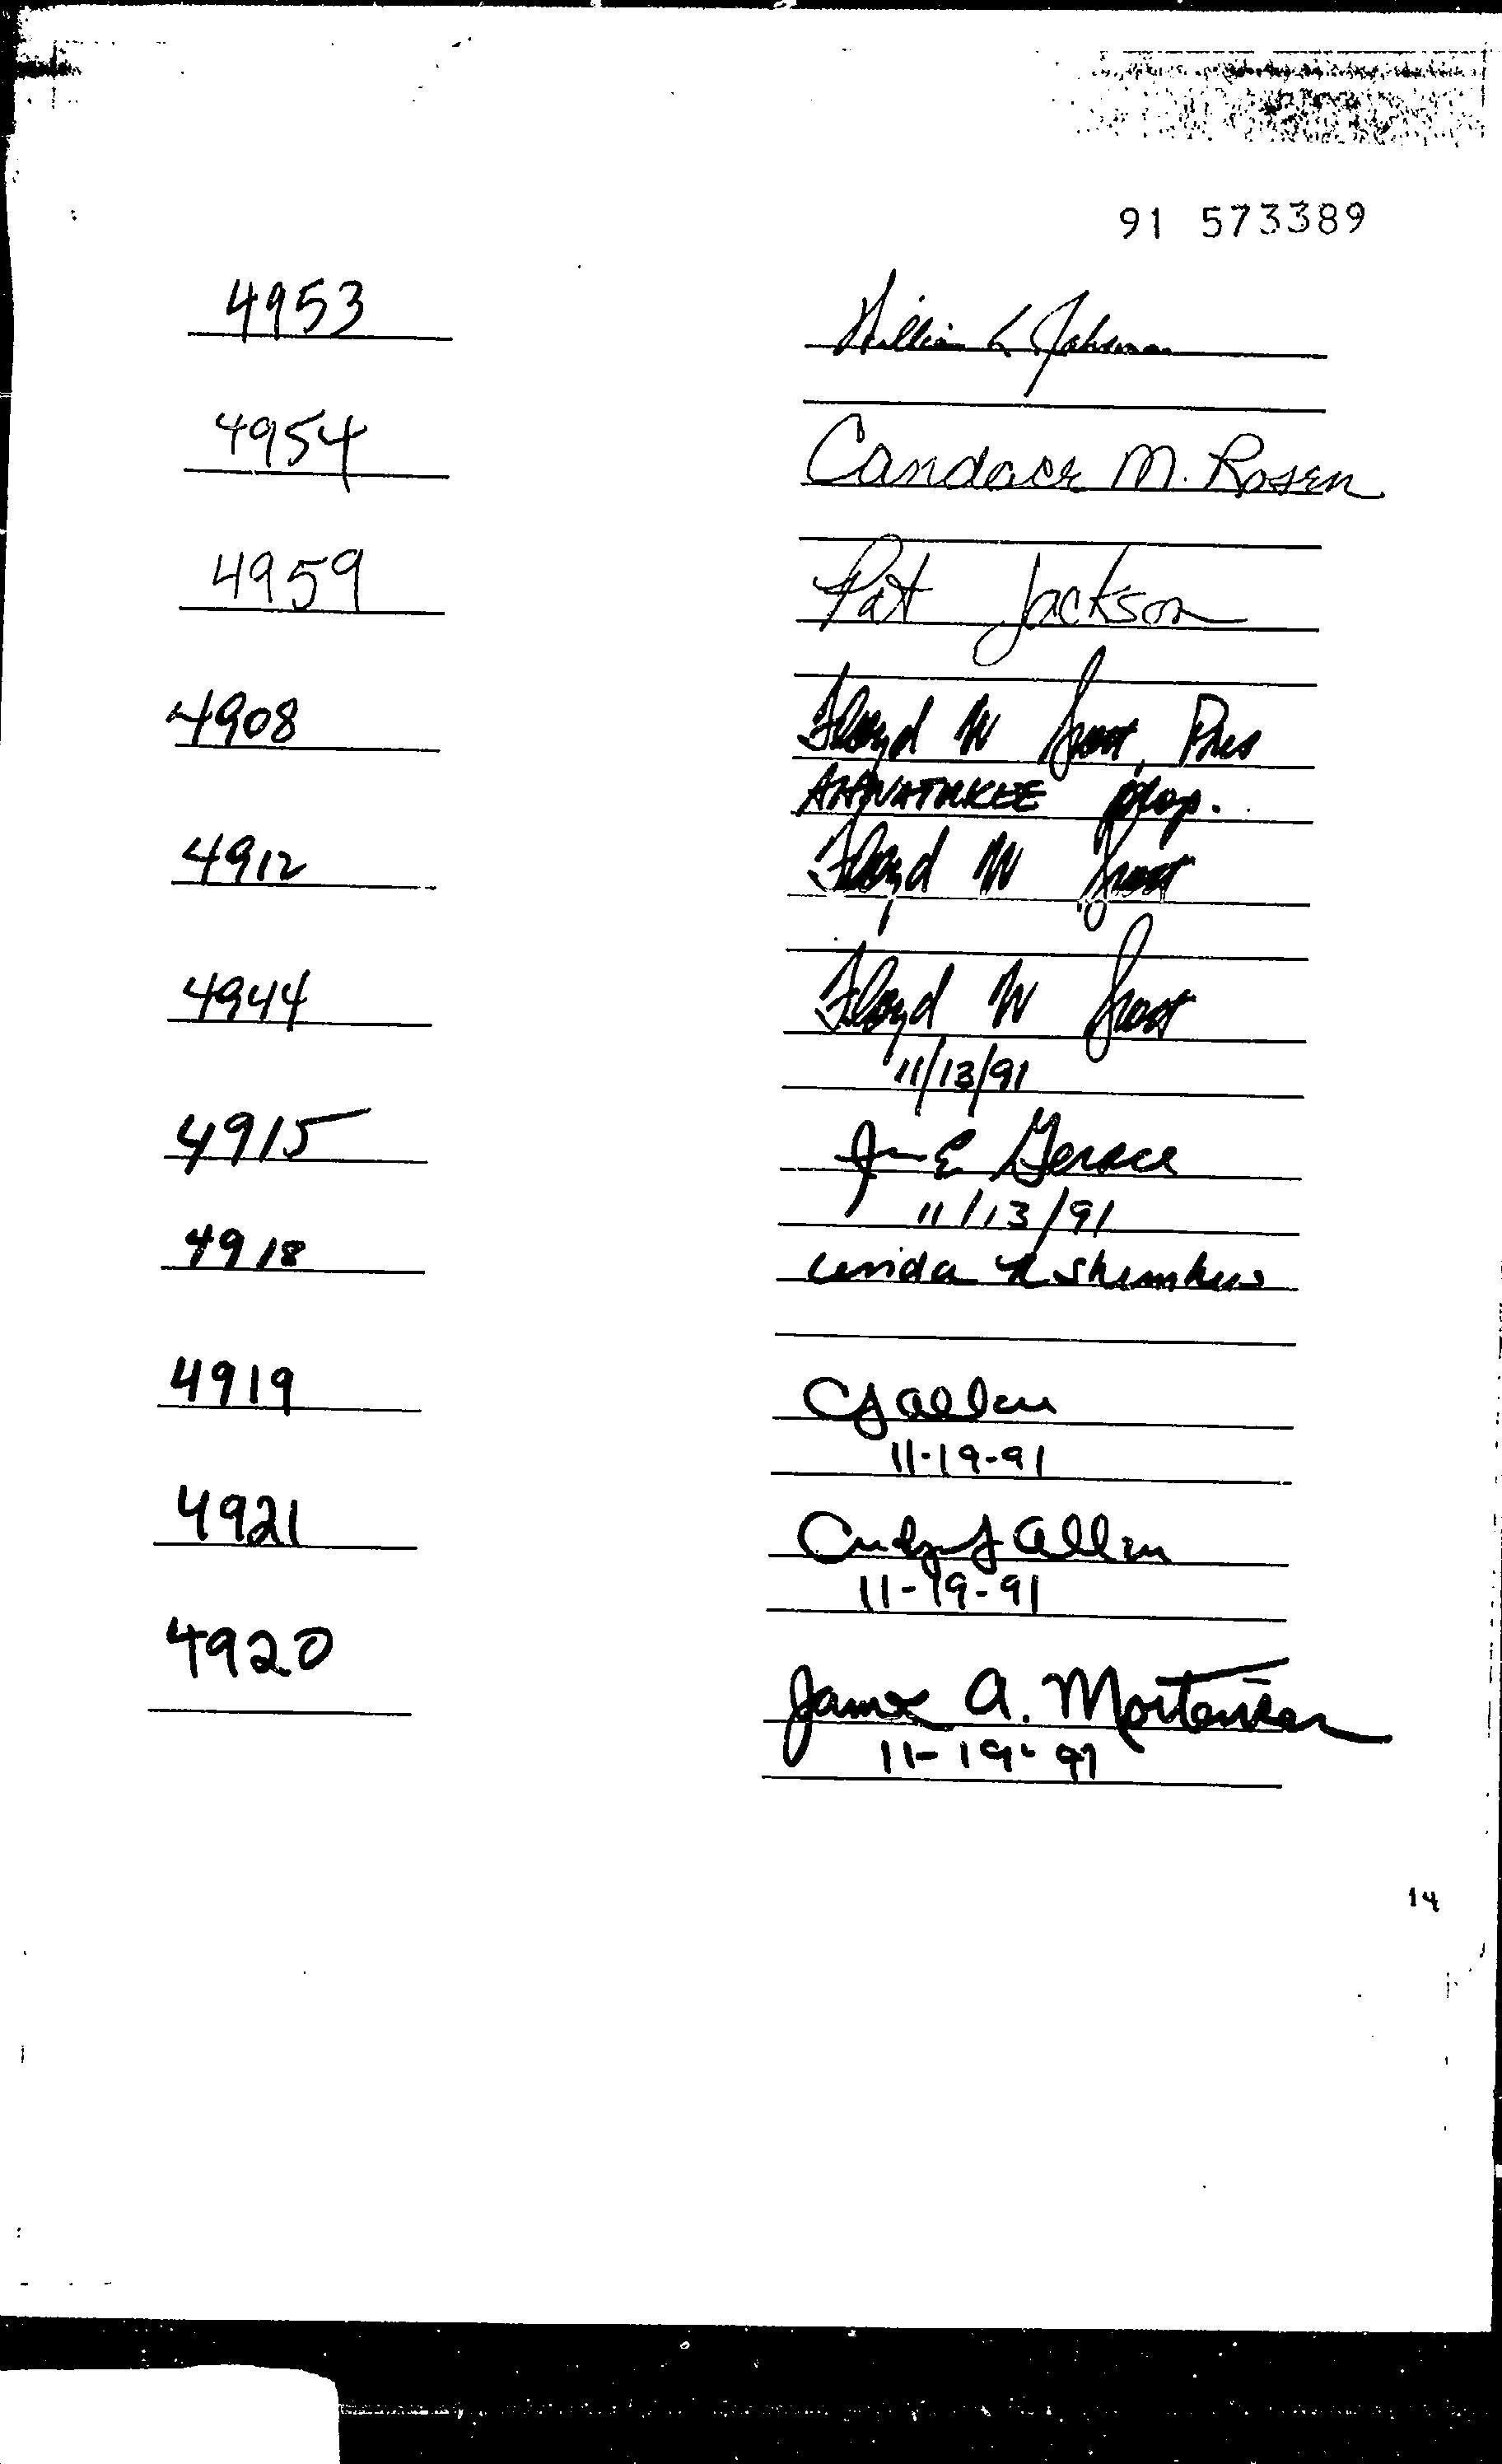 91 573389
4953 William L Johnson
4954 Candace M. Rosen
4959 Pat Jackson
4908 Floyd W Pres
AHWATUKEE prop.
4912 Floyd W
4944 Floyd W
11/13/91
4915 E Gerace
11/13/91
4918
4919 CJ Allen
11-19-91
4921 Cindy J Allen
11-19-91
4920 James A. Mortensen
11-19-91
14